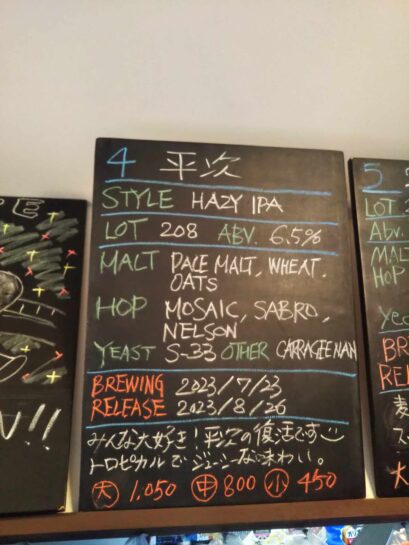 4 平次
STYLE HAZY IPA
LOT 208 ABV. 6.5%
MALT PALE MALT, WHEAT,
OATS
HOP MOSAIC, SABRO,
NELSON
YEAST S-33 OTHER CARRAGEENAN
BREWING 2023/7/23
RELEASE 2023/8/26
みんな大好き!平次の復活です
トロピカルでジューシーな味わい。
大 1,050 中 800 小 450
5
LOT
Abv.
MALT
HOP
Ye
BR
REL
N!!